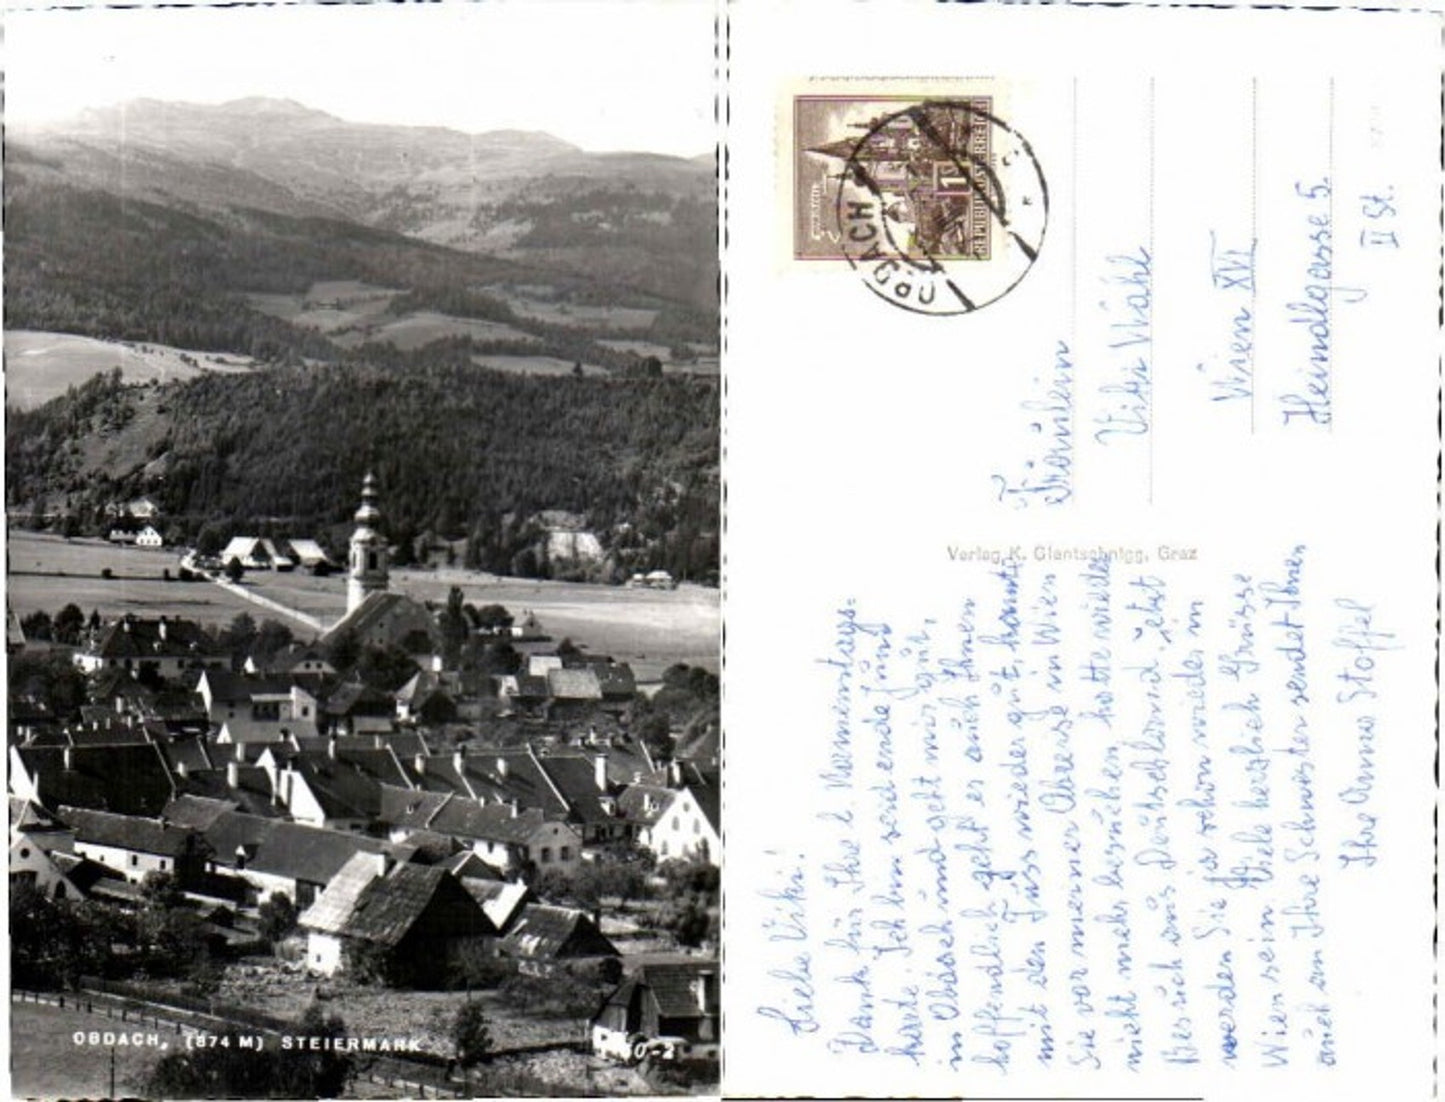 OBDACH, (874 M) STEIERMARK
REPUBLIK ÖSTERREICH
1
OBDACH
Verlag K. Glantschnigg, Graz
Fräulein
Viki Wähl
Wien XVI
Heindlgasse 5.
II St.
Liebe Viki!
Dank für Ihre l. Namenstags=
karte. Ich bin seit ende Juni
in Obdach und geht mir gut,
hoffendlich geht es auch Ihnen
mit den Fuss wieder gut, konnte
Sie vor meiner Abreise in Wien
nicht mehr besuchen, hatte wieder
Besuch aus Deutschland. Jetzt
werden Sie ja schon wieder in
Wien sein. Viele herzlich Grüsse
auch an Ihre Schwester sendet Ihnen
Ihre Anna Stoffel